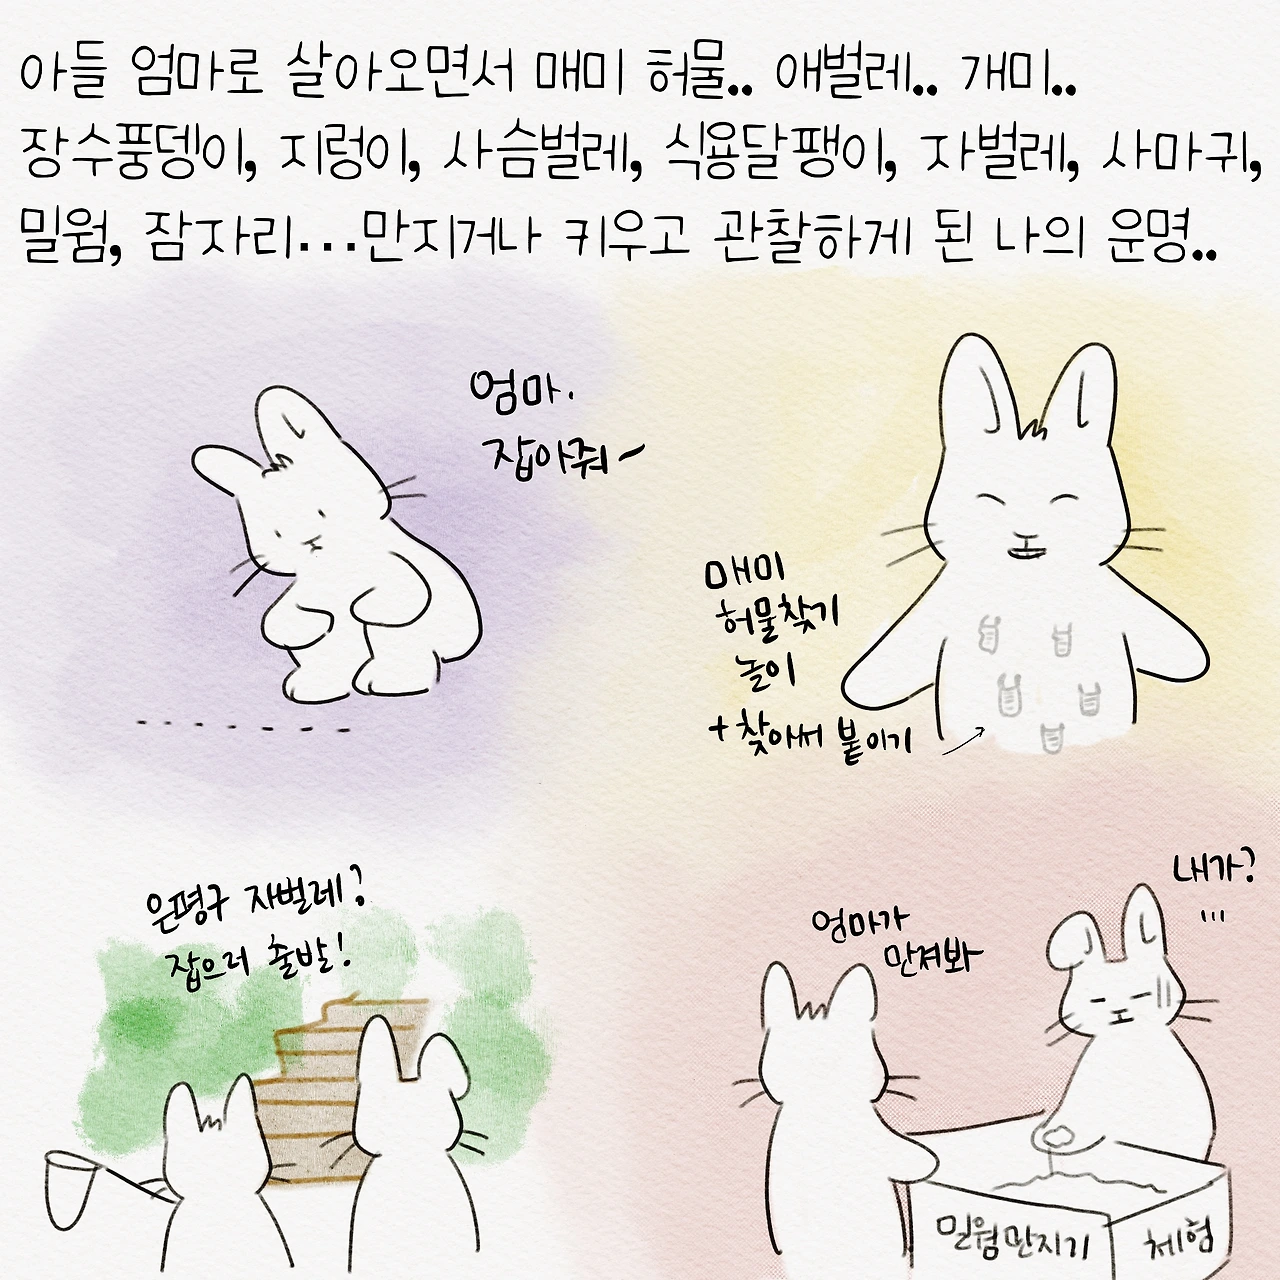 아들 엄마로 살아오면서 매미 허물.. 애벌레.. 개미..
장수풍뎅이, 지렁이, 사슴벌레, 식용달팽이, 자벌레, 사마귀,
밀웜, 잠자리...만지거나 키우고 관찰하게 된 나의 운명..
엄마.
잡아줘~
매미
허물찾기
놀이
+찾아서 붙이기
은평구 자벌레?
잡으러 출발!
내가?
...
엄마가
만져봐
밀웜만지기 체험